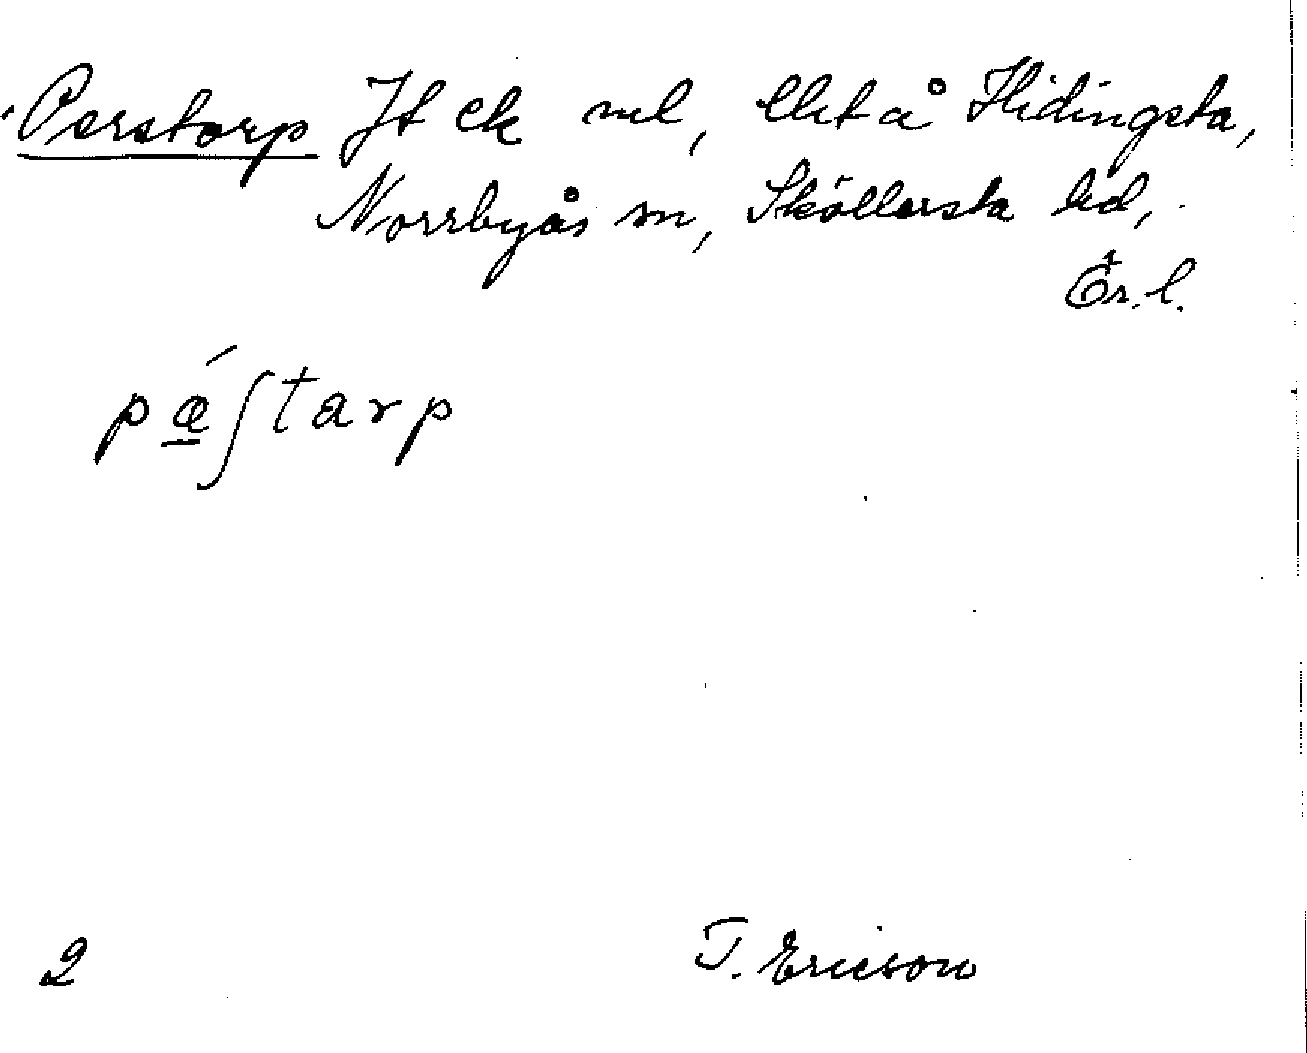 Perstorp Jt ek mel, lht å Hidingsta,
Norrbyås sn, Sköllersta hd,
Ör. l.
pǽʃtarp
2 T. Ericson